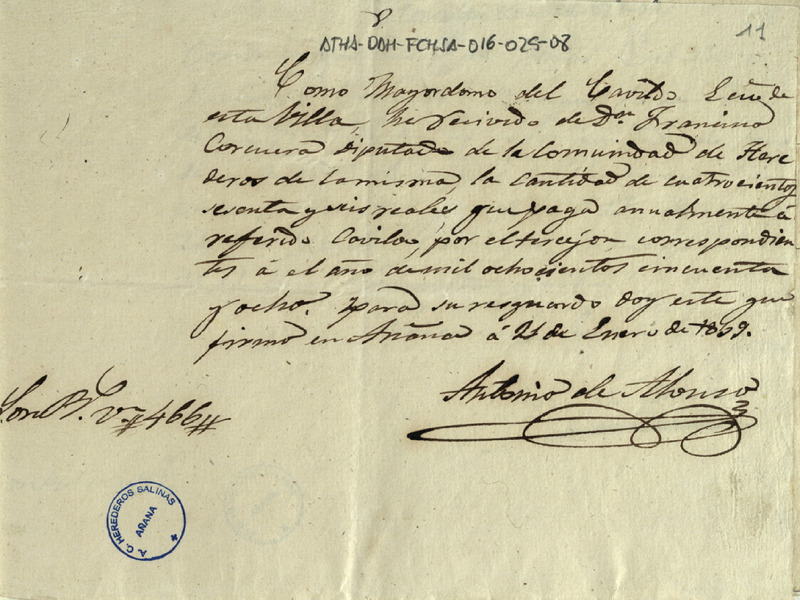 ATHA-DAH-FCHSA-016-029-08
11
Como Mayordomo del Cavildo Ecco de
esta Villa, he recivido de Dn. Francisco
Corcuera Diputado de la Comunidad de Here
deros de la misma, la cantidad de cuatrocientos
sesenta y seis reales que paga anualmente á
referido Cavildo, por el
correspondien
tes á el año de mil ochocientos cincuenta
y ocho. Y para su resguardo doy este que
firmo en Añana á 21 de Enero de 1859.
Antonio de Alonso
Son Rs. vn. #466#
A. C. HEREDEROS SALINAS
AÑANA